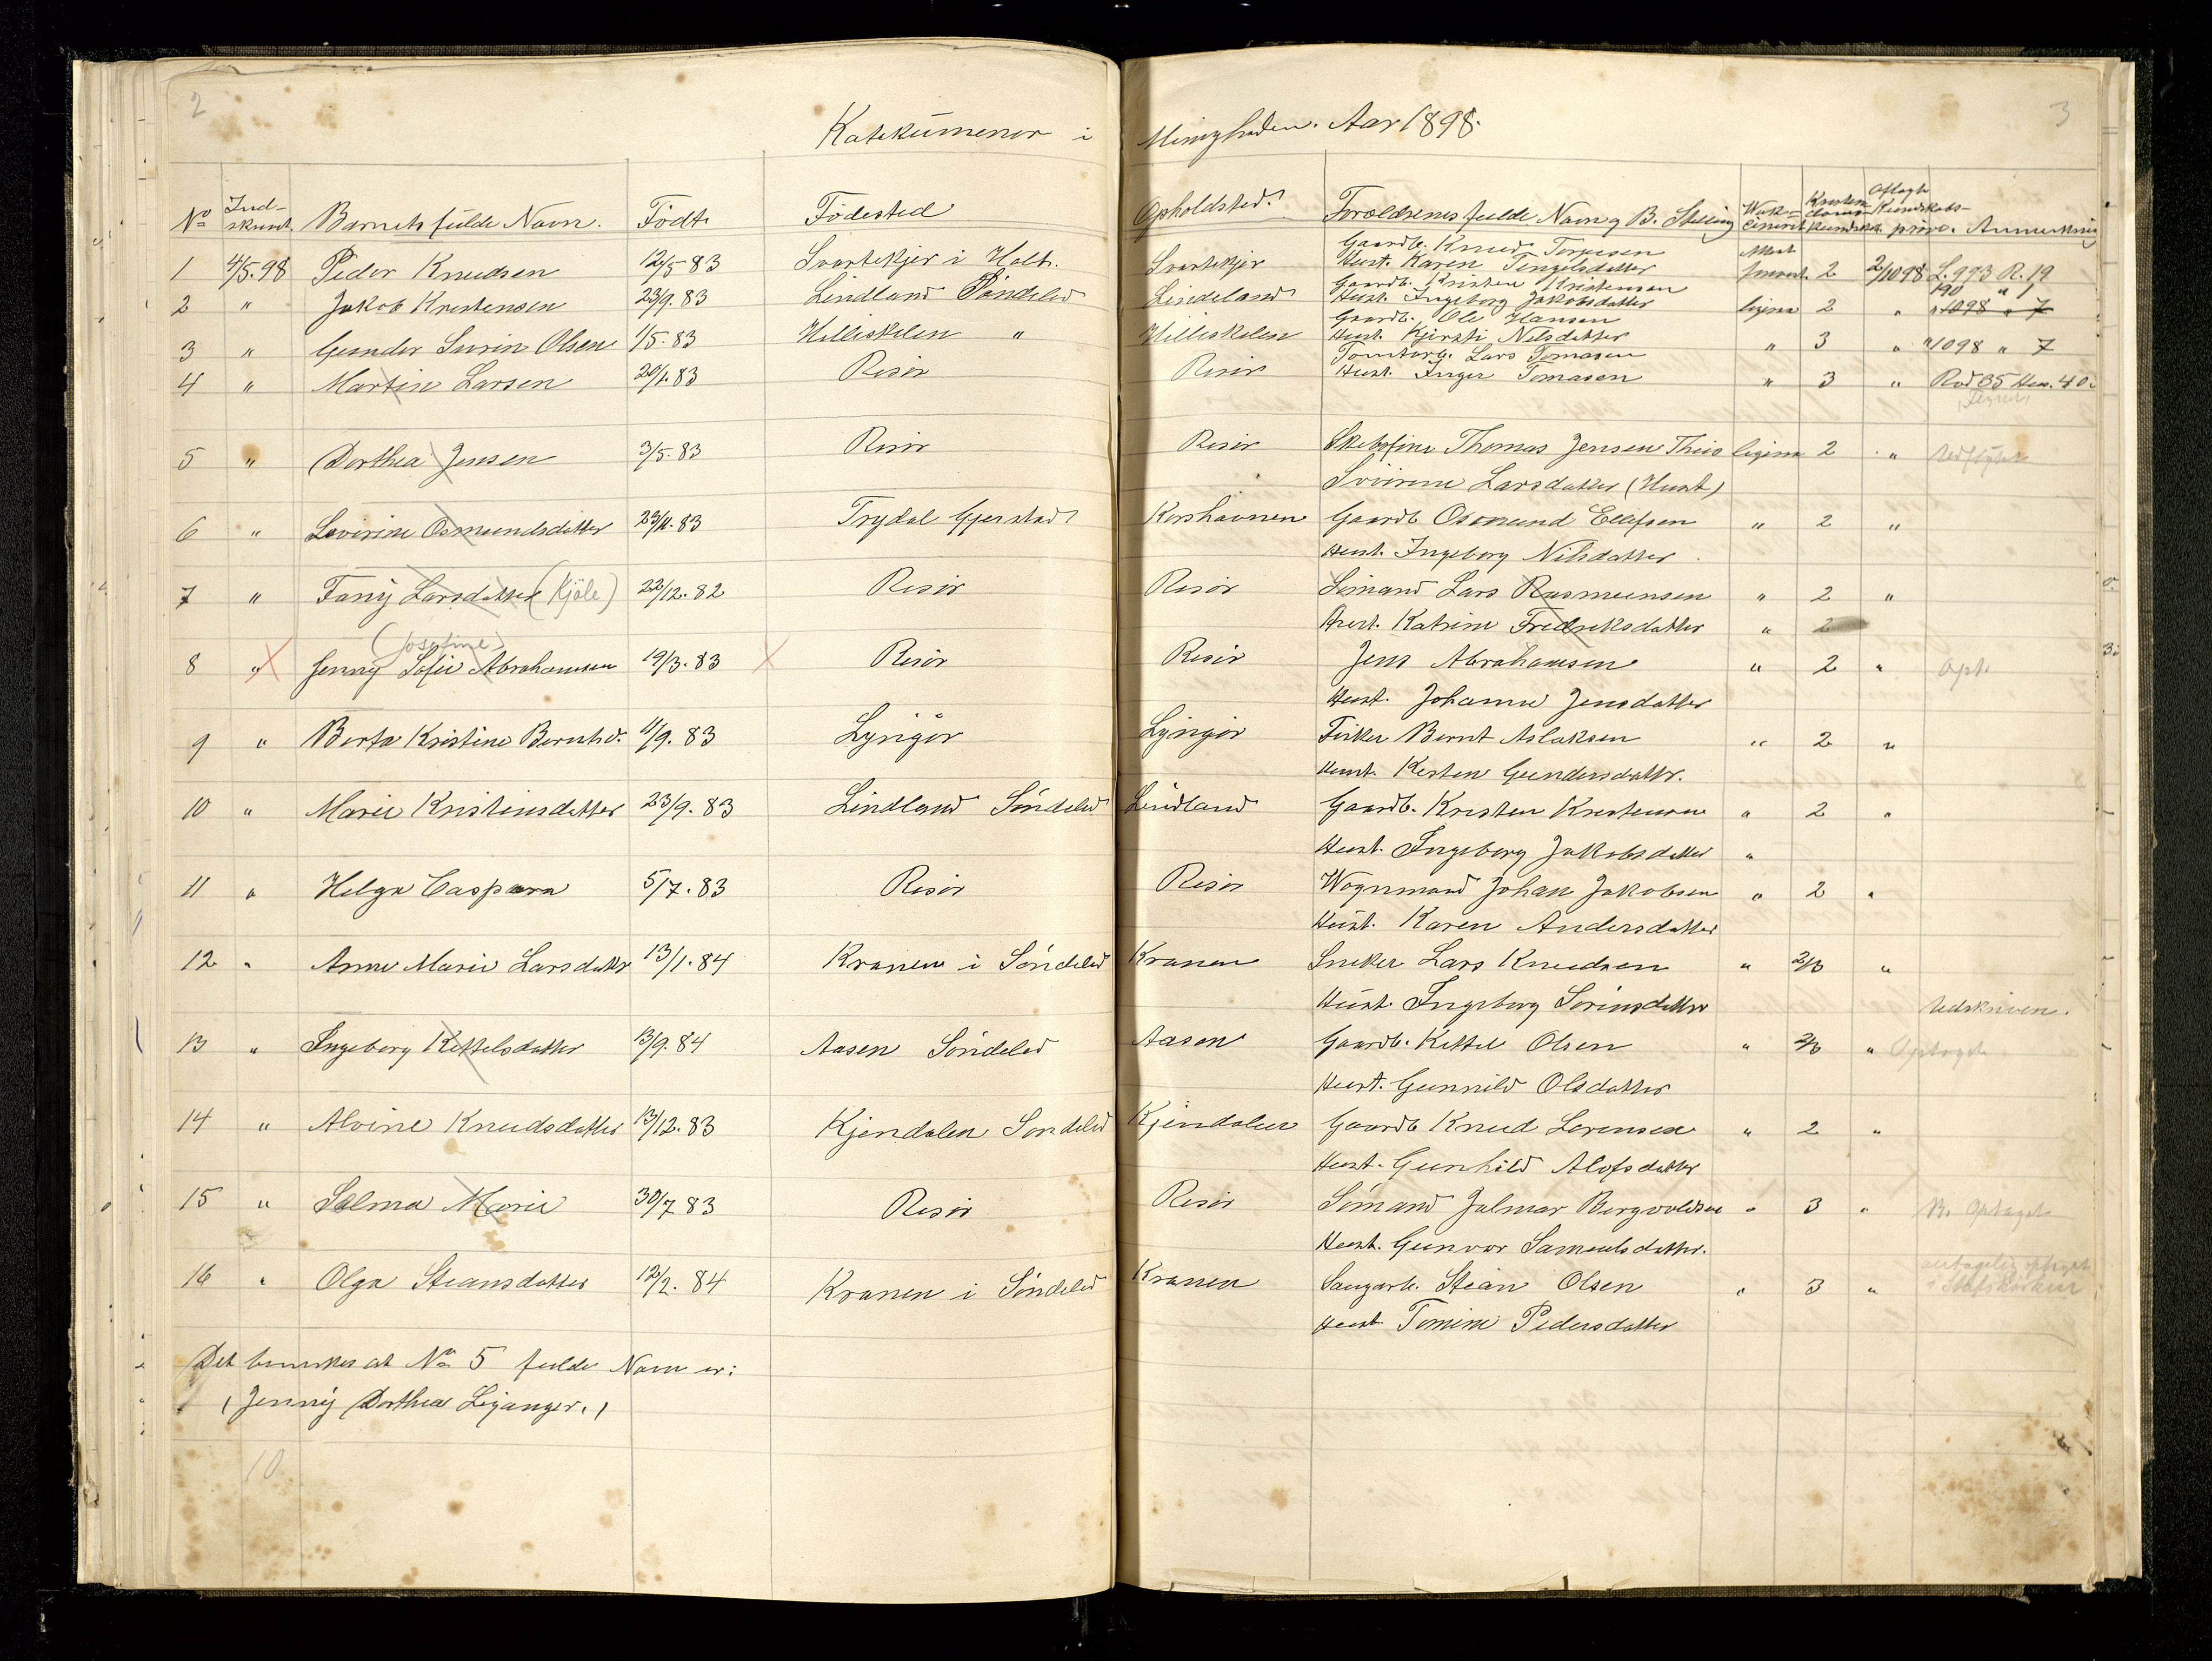 2
3
Katekümener i Menigheden. Aar 1898.
No Ind- skrevet. Barnets fulde Navn. Födt. Födested Opholdsted. Forældrenes fulde Navn og B. Stilling Kristen- doms- kundsk. Aflagt Kundskabs- pröve. Anmerkning
1 4/5.98 Peder Knudsen 12/5 83 Svartekjer i Holt. Svartekjer Gaardb. Knud Terjesen 2 2/10 98 L. 993 R. 19
Hust. Karen Tengelsdatter
2 " Jakob Kristensen 23/9. 83 Lindland Söndeled Lindeland Gaardb. Kristen Kristensen 2 " 190 " 1
Hust. Ingeborg Jakobsdatter " 1098 " 7
3 " Gunder Severin Olsen 1/5. 83 Helleskilen " Helleskilen Gaardb. Ole Hansen " 3 " " 1098 " 7
Hust. Kjersti Nilsdatter
4 " Martin Larsen 20/1. 83 Risör Risör Tomtarb. Lars Tomasen " 3 " Rod 35 Hus. 40.
Hust. Inger Tomasen
5 " Dorthea Jensen 3/5. 83 Risör Risör Thomas Jensen 2 "
Larsdatter (Hust)
6 " Severine Osmundsdatter 23/11. 83 Trydal Gjerstad Korshavnen Gaardb Osmund Ellefsen " 2 "
Hust. Ingeborg Nilsdatter
7 " Fanny Larsdatter (Kjöle) 22/12. 82 Risör Risör Sömand Lars Rasmunsen " 2 "
Hust. Katrine Fredriksdatter " 2
(Josefine)
8 " Jenny Sofie Abrahamsen 19/3. 83 Risör Risör Jens Abrahamsen " 2 " Opt.
Hust. Johanne Jensdatter
9 " Berta Kristine Berntsd. 4/9. 83 Lyngör Lyngör Fisker Bernt Aslaksen " 2 "
Hust. Kesten Gundersdattr.
10 " Marie Kristensdatter 23/9. 83 Lindland Söndeled Lindland Gaardb. Kristen Kristensen " 2 "
Hust. Ingeborg Jakobsdatter "
11 " Helga Caspara 5/7. 83 Risör Risör Vognmand Johan Jakobsen " 2 "
Hust. Karen Andersdatter
12 " Anne Marie Larsdattr 13/1. 84 Kranen i Söndeled Kranen Sneker Lars Knudsen " 2/3 "
Hust. Ingeborg Sörensdatter
Udskriven.
13 " Ingeborg Kettelsdatter 13/9. 84 Aasen Söndeled Aasen Gaardb. Kettel Olsen " 2/3 " Optaget
Hust. Gunnild Olsdatter
14 " Alvine Knudsdatter 13/12. 83 Kjendalen Söndeled Kjendalen Gaardb Knud Lorensen " 2 "
Hust. Gunhild Alofsdatter
15 " Selma Marie 30/7 83 Risör Risör Sömand Jalmar Bergvoldsen " 3 " B. Optaget
Hust. Gunvor Samuelsdatter.
16 " Olga Steansdatter 12/2. 84 Kranen i Söndeled Kranen Saugarb. Stean Olsen " 3 "
Hust. Tomine Pedersdatter
Det bemerkes at No 5 fulde Navn er:
(Jenny Dorthea Leganger.)
10